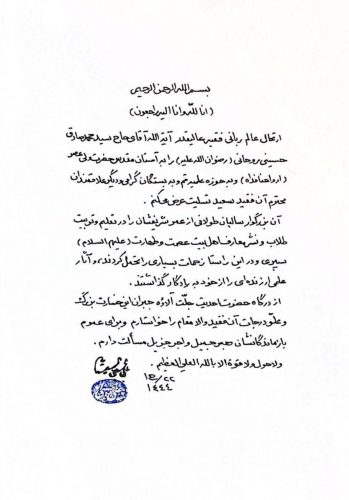 بسم الله الرحمن الرحیم
(انا لله وانا الیه راجعون)
ارتحال عالم ربانی فقیه عالیقدر آیة الله آقای حاج سید محمد صادق
حسینی روحانی (رضوان الله علیه) را به آستان مقدس حضرت ولی عصر
(ارواحنا فداه) و به حوزه علمیه قم و به بستگان گرامی و دیگر علاقمندان
محترم آن فقید سعید تسلیت عرض می‌کنم.
آن بزرگوار سالیان طولانی از عمر شریفشان را در تعلیم و تربیت
طلاب و نشر معارف اهل بیت عصمت و طهارت (علیهم السلام)
سپری و در این راستا زحمات بسیاری را تحمل کردند، و آثار
علمی ارزنده‌ای را از خود به یادگار گذاشتند.
از درگاه حضرت احدیت جلّت آلاؤه جبران این خسارت بزرگ
و علوّ درجات آن فقید والا مقام را خواستارم و برای عموم
بازماندگانشان صبر جمیل و اجر جزیل مسألت دارم.
ولا حول ولا قوة الا بالله العلي العظیم.
۲۲
۱۴۴۴